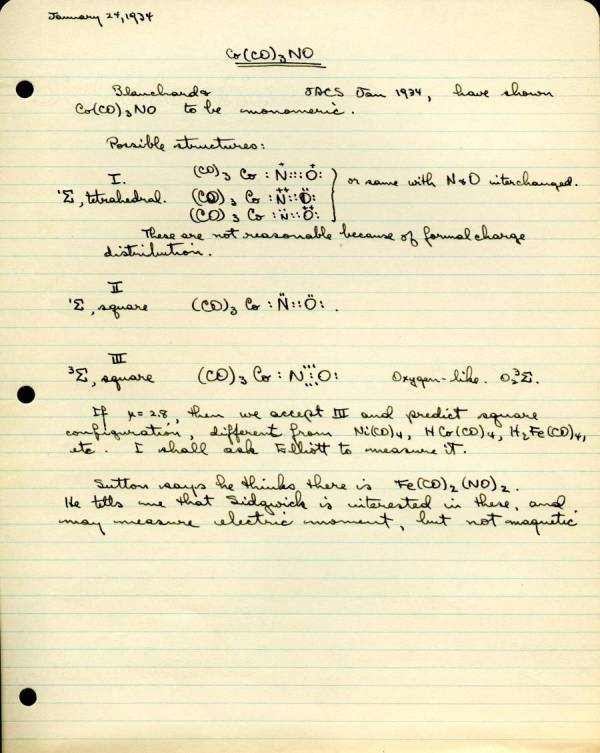 January 24, 1934
Co(CO)₃NO
Blanchard & JACS Jan 1934, have shown
Co(CO)₃NO to be monomeric.
Possible structures:
I.
¹Σ, tetrahedral.
(CO)₃ Co : N⁺ ::: O⁺ :
(CO)₃ Co : N̈⁺⁺ :: Ö :
(CO)₃ Co : N̈ :: Ö⁺⁺ :
} or same with N & O interchanged.
These are not reasonable because of formal charge
distribution.
II
¹Σ, square (CO)₃ Co : N̈ :: Ö : .
III
³Σ, square (CO)₃ Co : N ⋮⋮⋮ O : Oxygen-like. O₂ ³Σ.
If μ = 2.8, then we accept III and predict square
configuration, different from Ni(CO)₄, HCo(CO)₄, H₂Fe(CO)₄,
etc. I shall ask Elliott to measure it.
Sutton says he thinks there is Fe(CO)₂(NO)₂.
He tells me that Sidgwick is interested in these, and
may measure electric moment, but not magnetic